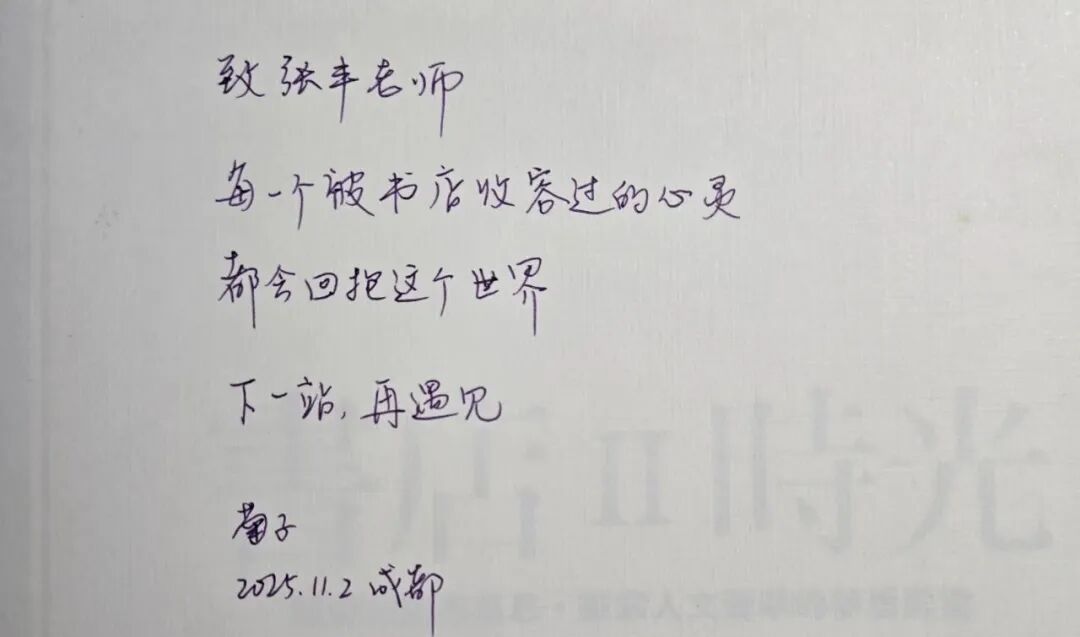 致张丰老师
每一个被书店收容过的心灵
都会回抱这个世界
下一站，再遇见
菊子
2025.11.2 成都
書店II時光